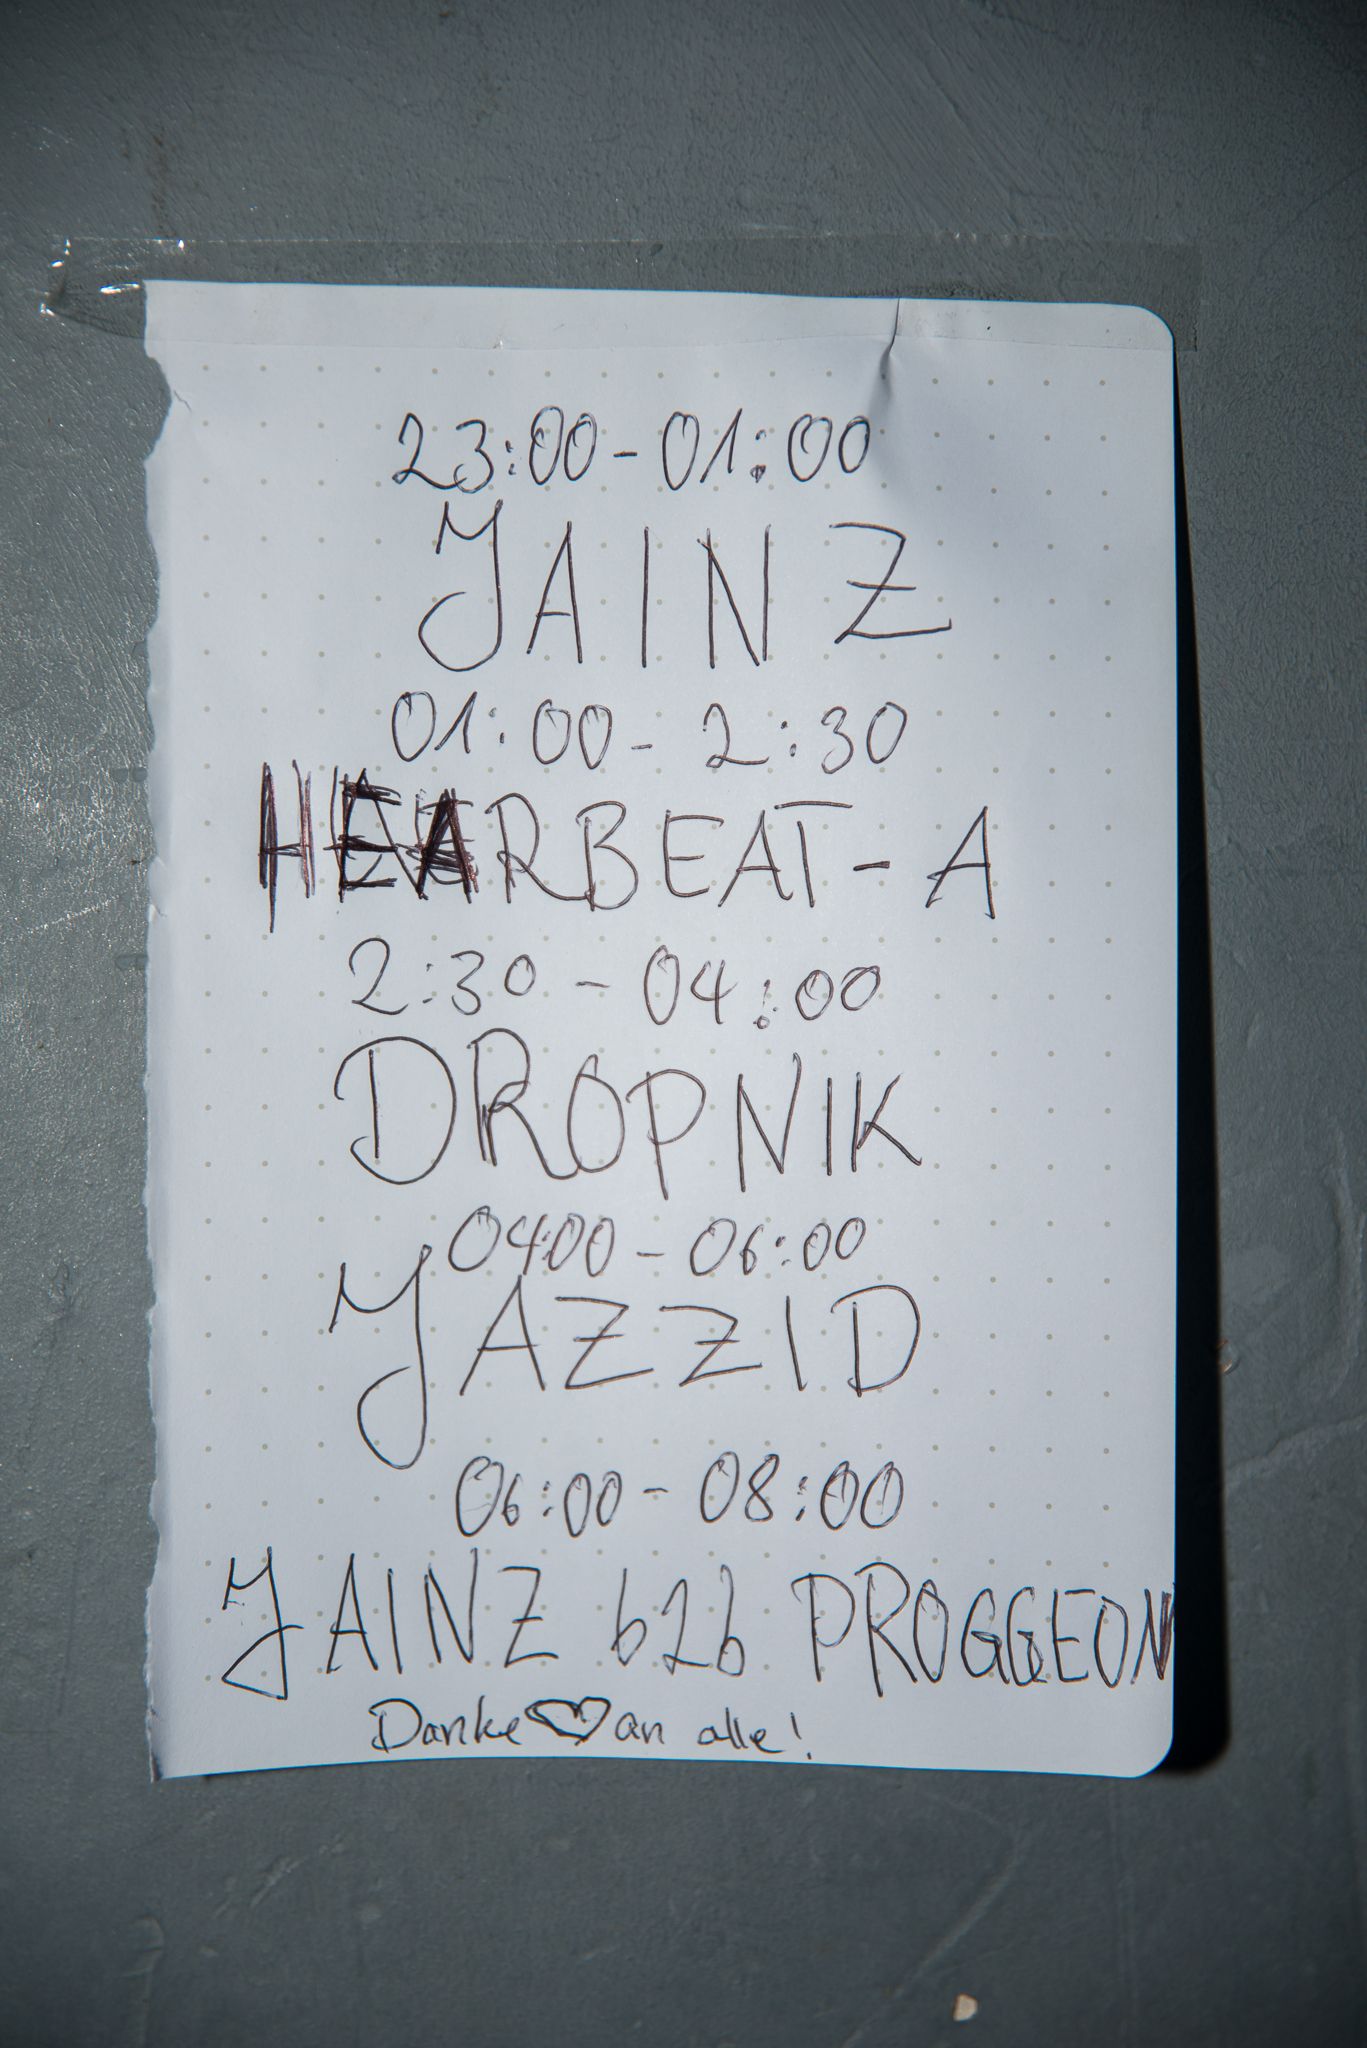 23:00 - 01:00
JAINZ
01:00 - 2:30
HEARBEAT - A
2:30 - 04:00
DROPNIK
04:00 - 06:00
JAZZID
06:00 - 08:00
JAINZ b2b PROGGEON
Danke ♡ an alle!